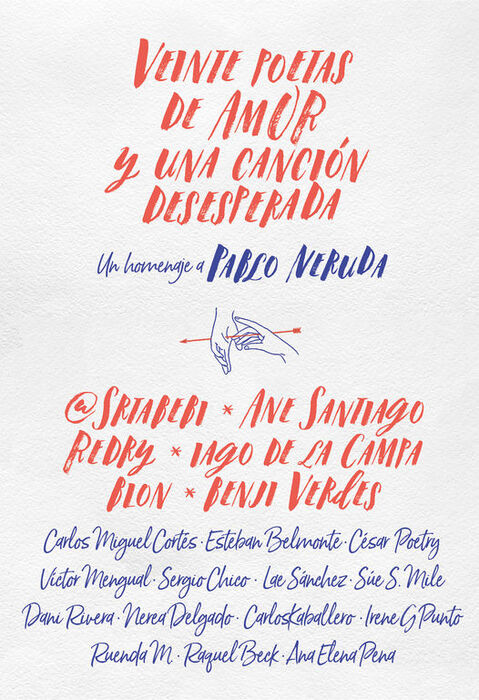 VEINTE POETAS
DE AMOR
y UNA CANCIÓN
DESESPERADA
Un homenaje a PABLO NERUDA
@SRTABEBI * ANE SANTIAGO
REDRY * IAGO DE LA CAMPA
BLON * BENJI VERDES
Carlos Miguel Cortés · Esteban Belmonte · César Poetry
Víctor Mengual · Sergio Chico · Lae Sánchez · Súe S. Mile
Dani Rivera · Nerea Delgado · CarlosKaballero · Irene G Punto
Ruenda M. · Raquel Beck · Ana Elena Pena